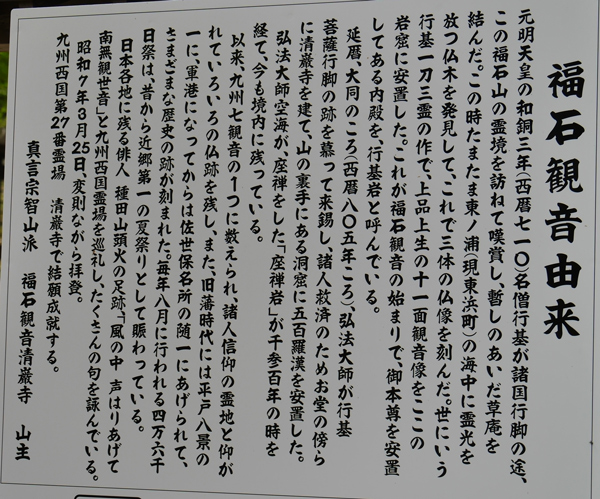 福石観音由来
元明天皇の和銅三年（西暦七一〇）名僧行基が諸国行脚の途、
この福石山の霊境を訪ねて嘆賞し、暫しのあいだ草庵を
結んだ。この時たまたま東ノ浦（現東浜町）の海中に霊光を
放つ仏木を発見して、これで三体の仏像を刻んだ。世にいう
行基一刀三霊の作で、上品上生の十一面観音像をここの
岩窟に安置した。これが福石観音の始まりで、御本尊を安置
してある内殿を、行基岩と呼んでいる。
延暦、大同のころ（西暦八〇五年ころ）、弘法大師が行基
菩薩行脚の跡を慕って来錫し、諸人救済のためお堂の傍ら
に清巌寺を建て、山の裏手にある洞窟に五百羅漢を安置した。
弘法大師空海が、座禅をした「座禅岩」が千参百年の時を
経て、今も境内に残っている。
以来、九州七観音の1つに数えられ、諸人信仰の霊地と仰が
れていろいろの仏跡を残し、また、旧藩時代には平戸八景の
一に、軍港になってからは佐世保名所の随一にあげられて、
さまざまな歴史の跡が刻まれた。毎年八月に行われる四万六千
日祭は、昔から近郷第一の夏祭りとして賑わっている。
日本各地に残る俳人 種田山頭火の足跡、「風の中 声はりあげて
南無観世音」と九州西国霊場を巡礼し、たくさんの句を詠んでいる。
昭和7年3月25日、変則ながら拝登。
九州西国第27番霊場 清巌寺で結願成就する。
真言宗智山派 福石観音清巌寺 山主